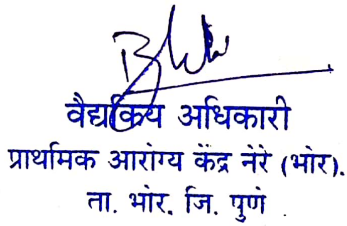 वैद्यकिय अधिकारी
प्राथमिक आरोग्य केंद्र नेरे (भोर).
ता. भोर. जि. पुणे